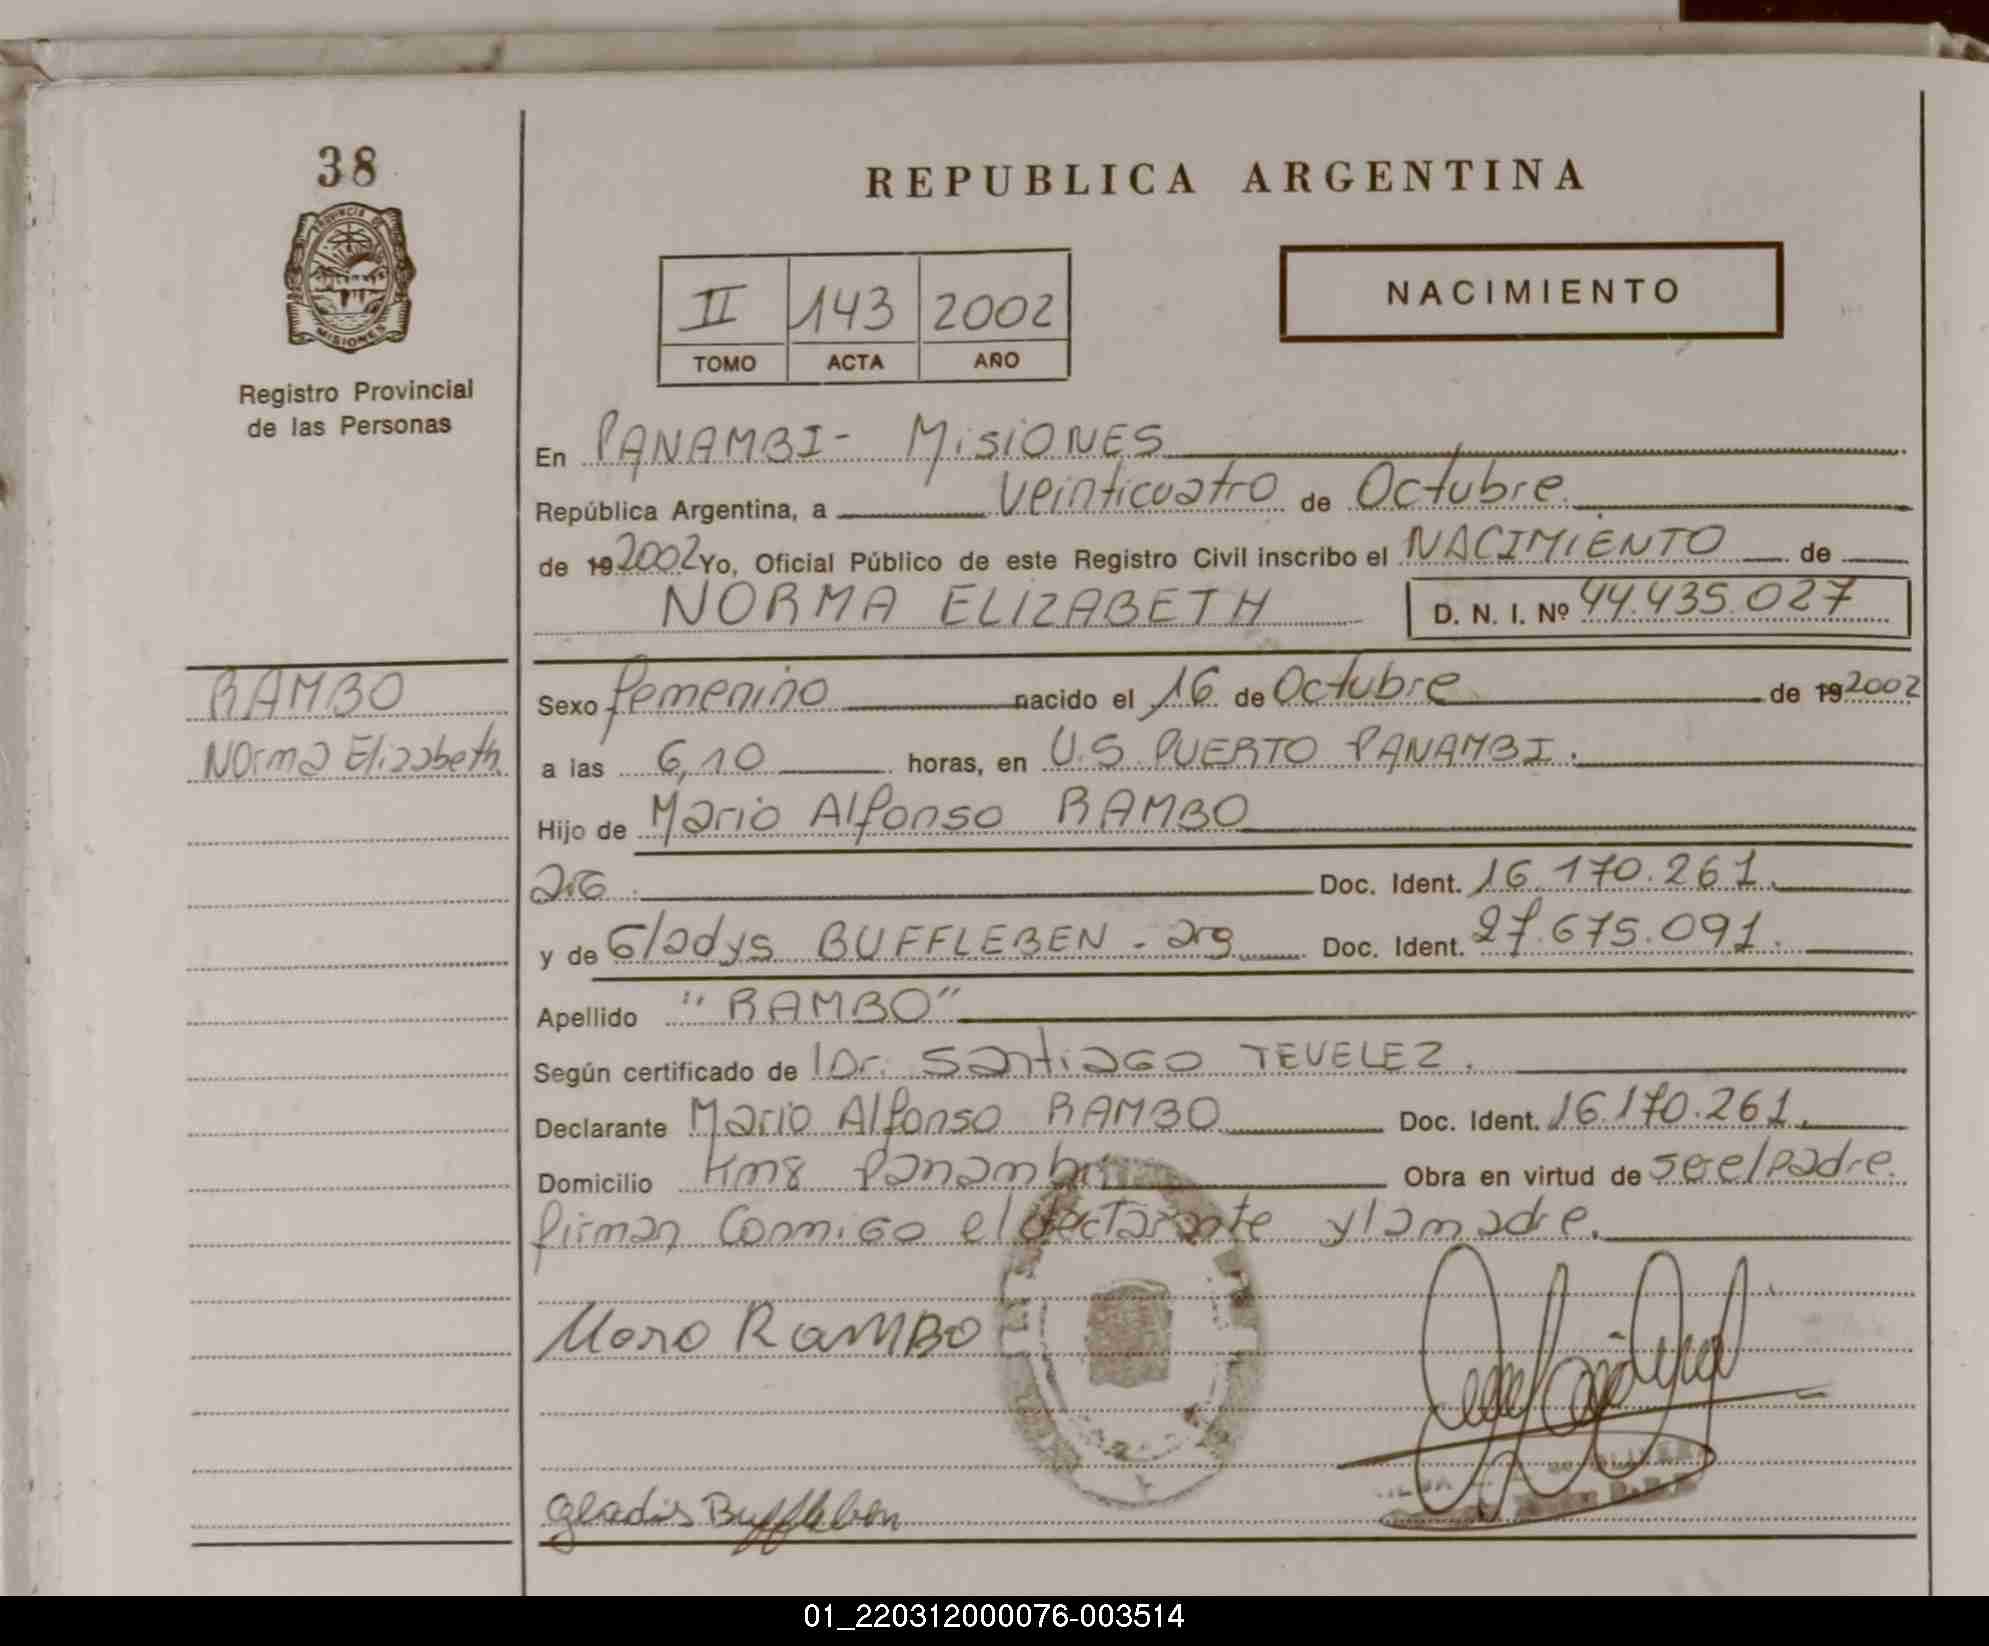 38
PROVINCIA DE
MISIONES
Registro Provincial
de las Personas
REPUBLICA ARGENTINA
II 143 2002
TOMO ACTA AÑO
NACIMIENTO
En PANAMBI - MISIONES
República Argentina, a veinticuatro de Octubre
de 19 2002 Yo, Oficial Público de este Registro Civil inscribo el NACIMIENTO de
NORMA ELIZABETH D. N. I. Nº 44.435.027
RAMBO
Norma Elizabeth
Sexo femenino nacido el 16 de Octubre de 19 2002
a las 6,10 horas, en U.S. PUERTO PANAMBI.
Hijo de Mario Alfonso RAMBO
arg. Doc. Ident. 16.170.261.
y de Gladys BUFFLEBEN - arg Doc. Ident. 27.675.091.
Apellido "RAMBO"
Según certificado de Dr. Santiago TEVELEZ.
Declarante Mario Alfonso RAMBO Doc. Ident. 16.170.261.
Domicilio Km8 Panambi Obra en virtud de ser el padre.
firman Conmigo el declarante y la madre.
RAMBO
Gladis Buffleben
01_220312000076-003514